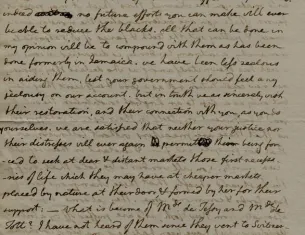 indeed no future efforts you can make will ever
be able to reduce the blacks. all that can be done in
my opinion will be to compound with them as has been
done formerly in Jamaica. we have been less zealous
in aiding them, lest your government should feel any
jealousy on our account. but in truth we as sincerely wish
their restoration, and their connection with you, as you do
yourselves. we are satisfied that neither your justice nor
their distresses will ever again permit their being for-
-ced to seek at dear & distant markets those first neces-
-ries of life which they may have at cheaper markets
placed by nature at their door, & formed by her for their
support. — what is become of Mde de Tessy and Mde de
Tott? I have not heard of them since they went to Switzer